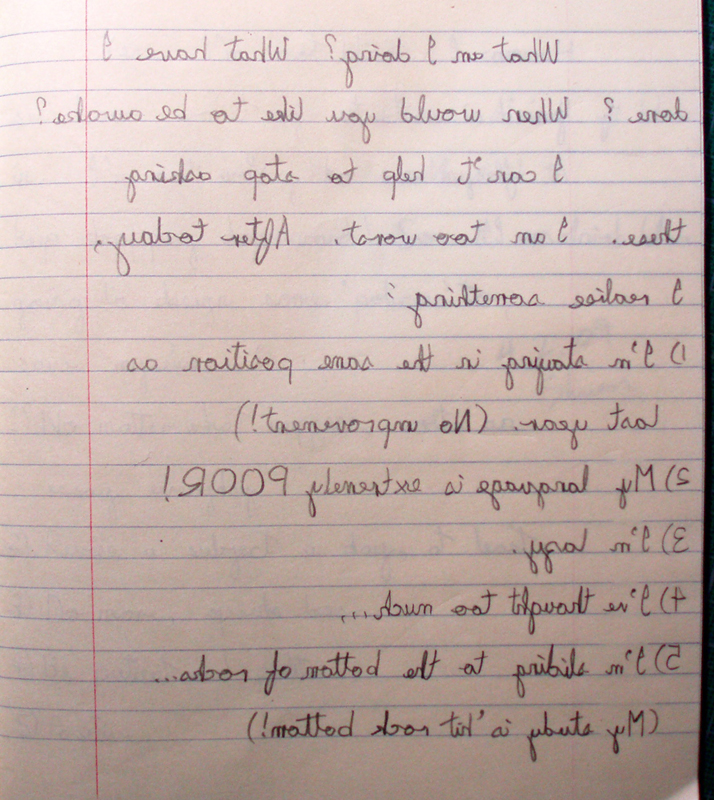 What am I doing? What have I
done? When would you like to be awoke?
I can't help to stop asking
these. I am too worst. After today,
I realise something:
1) I'm staying in the same position as
last year. (No improvement!)
2) My language is extremely POOR!
3) I'm lazy.
4) I've thought too much...
5) I'm sliding to the bottom of rocks...
(My study is 'hit rock bottom!)